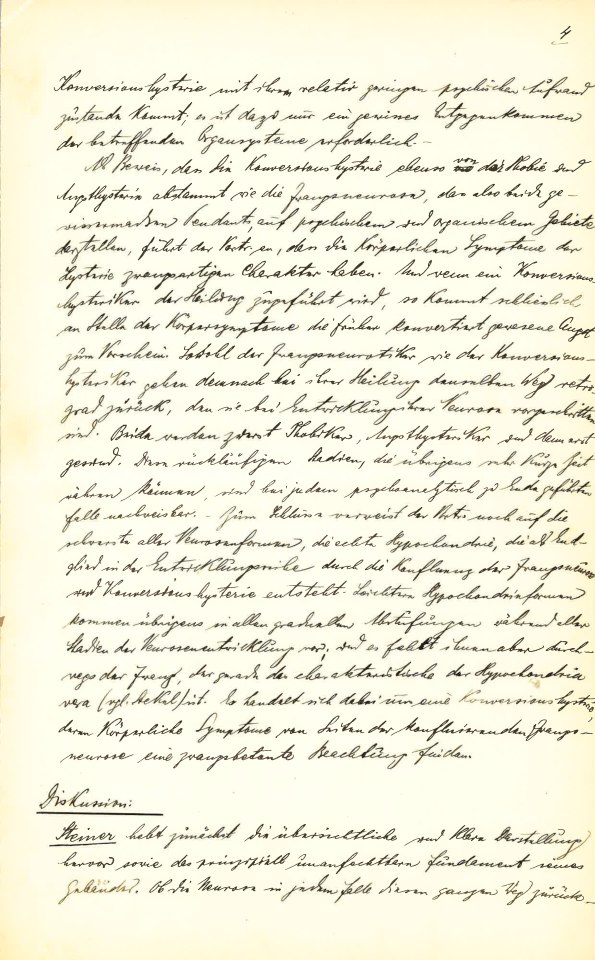 4
Konversionshysterie mit ihrem relativ geringen psychischen Aufwand
zustande kommt; es ist dazu nur ein gewisses Entgegenkommen
der betreffenden Organsysteme erforderlich. –
Als Beweis, dass die Konversionshysterie ebenso von der Phobie und
Angsthysterie abstammt wie die Zwangsneurose, dass also beide ge-
wissermassen Pendants auf psychischem und organischem Gebiete
darstellen, führt der Vortr. an, dass die körperlichen Symptome der
Hysterie zwangartigen Charakter haben. Und wenn ein Konversions-
hysteriker der Heilung zugeführt wird, so kommt schliesslich
an Stelle der Körpersymptome die früher konvertiert gewesene Angst
zum Vorschein. Sowohl der Zwangsneurotiker wie der Konversions-
hysteriker gehen demnach bei ihrer Heilung denselben Weg retro-
grad zurück, den sie bei Entwicklung ihrer Neurose vorgeschritten
sind. Beide werden zuerst Phobiker, Angsthysteriker und dann erst
gesund. Diese rückläufigen Stadien, die übrigens sehr kurze Zeit
währen können, sind bei jedem psychoanalytisch zu Ende geführten
Falle nachweisbar. – Zum Schlusse verweist der Vortr. noch auf die
schwerste aller Neurosenformen, die echte Hypochondrie, die als End-
glied in der Entwicklungsreihe durch die Konfluenz der Zwangsneurose
und Konversionshysterie entsteht. Leichtere Hypochondrieformen
kommen übrigens in allen graduellen Abstufungen während aller
Stadien der Neurosenentwicklung vor; und es fehlt ihnen aber durch-
wegs der Zwang, der gerade das charakteristische der Hypochondria
vera (vgl. Stekel) ist. Es handelt sich dabei um eine Konversionshysterie,
deren körperliche Symptome von Seiten der konfluierenden Zwangs-
neurose eine zwangbetonte Beachtung finden.
Diskussion:
Steiner hebt zunächst die übersichtliche und klare Darstellung
hervor sowie das prinzipiell unanfechtbare Fundament seines
Gebäudes. Ob die Neurose in jedem Falle diesen ganzen Weg zurück-